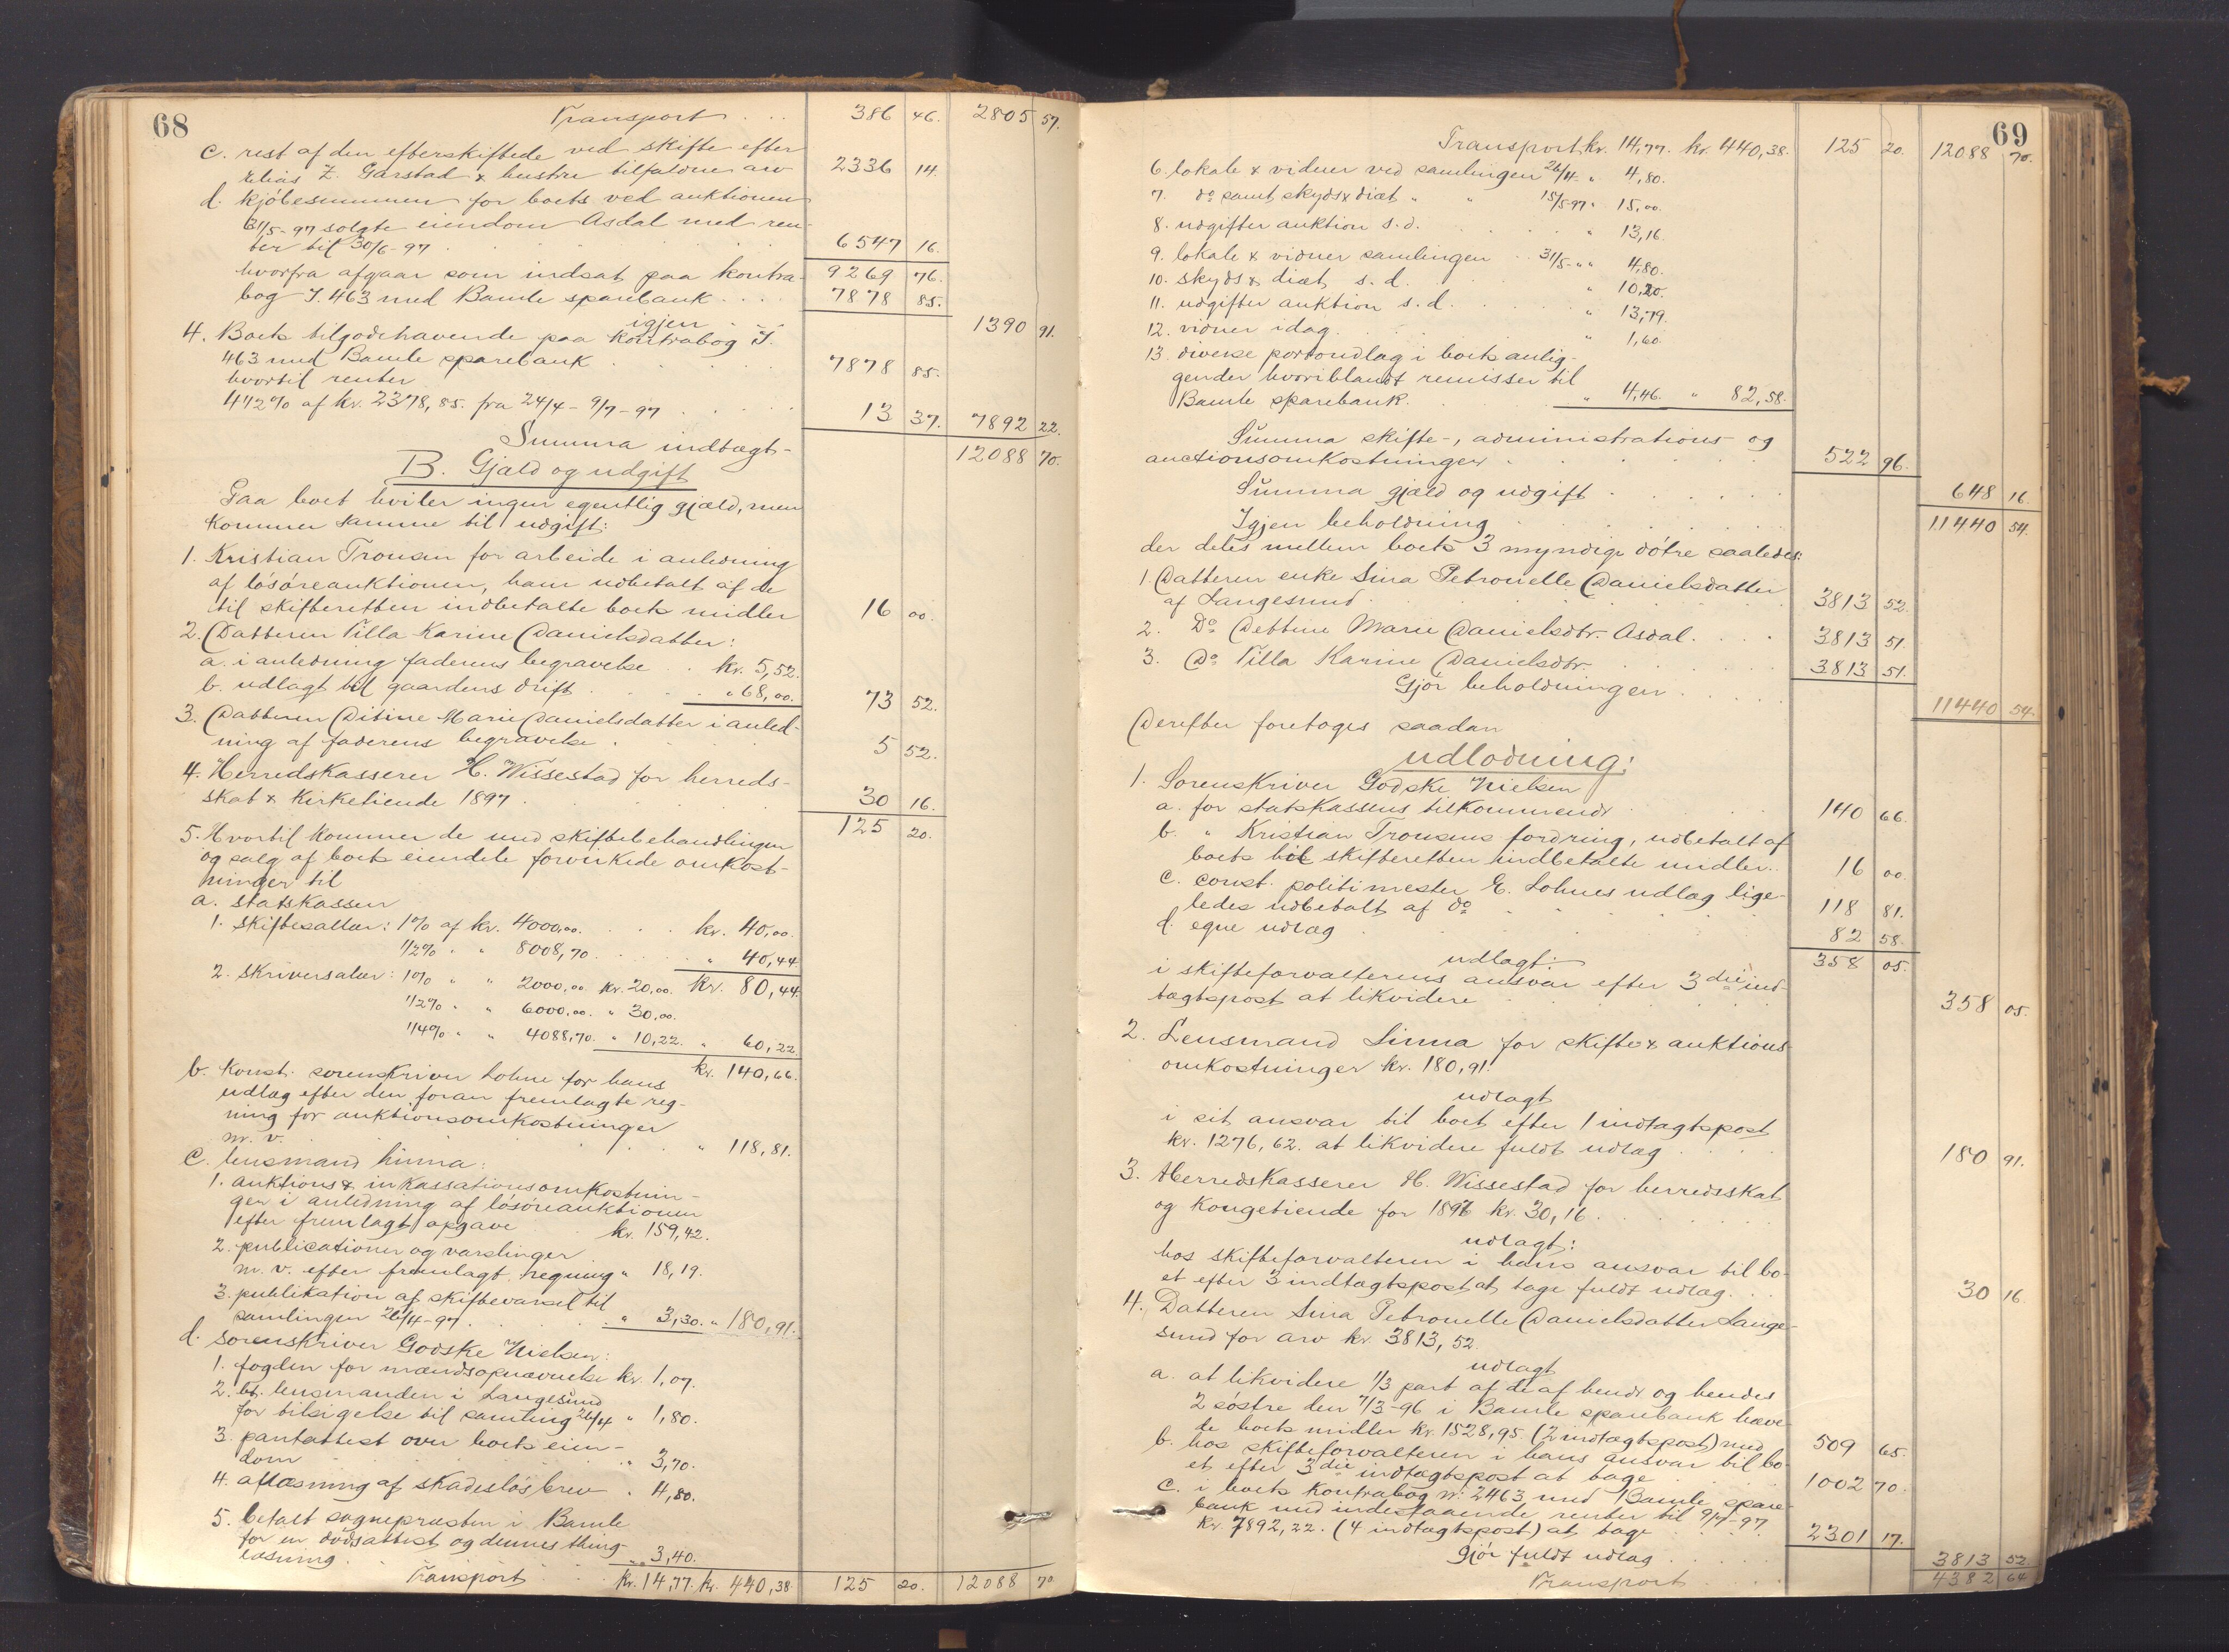 68
Transport . . . 386 46. 2805 57.
c. rest af den efterskiftede ved skifte efter
Elias Z. Garstad & hustru tilfaldne arv 2336 14.
d. kjöbesummen for boets ved auktionen
31/5-97 solgte eiendom Asdal med ren-
ter til 30/6-97 . . . 6547 16.
hvorfra afgaar som indsat paa kontra- 9269 76.
bog I. 463 med Bamle sparebank . . . 7878 85.
igjen . . 1390 91.
4. Boets tilgodehavende paa kontrabog I.
463 med Bamle sparebank . . . 7878 85.
hvortil renter
4 1/2 % af kr. 2378,85. fra 24/4 - 9/7-97 . . . 13 37. 7892 22.
Summa indtægt- 12088 70.
B. Gjæld og udgift
Paa boet hviler ingen egentlig gjæld, men
kommer samme til udgift:
1. Kristian Tronsen for arbeide i anledning
af lösöreauktionen, ham udbetalt af de
til skifteretten indbetalte boets midler 16 00.
2. Datteren Tilla Karine Danielsdatter:
a. i anledning faderens begravelse . . kr. 5,52.
b. udlagt til gaardens drift . . . " 68,00. 73 52.
3. Datteren Ditine Marie Danielsdatter i anled-
ning af faderens begravelse . . . 5 52.
4. Herredskasserer H. Wissestad for herreds-
skat & kirketiende 1897 . . . 30 16.
5. Hvortil kommer de med skiftebehandlingen 125 20.
og salg af boets eiendele forvirkede omkost-
ninger til
a. statskassen
1. skiftesallar: 1% af kr. 4000,00. . . . kr. 40,00.
1/2% " " 8008,70. . . . " 40,44.
2. skriversalær: 1% " " 2000,00 kr. 20,00. kr. 80,44.
1/2% " " 6000,00. " 30,00.
1/4% " " 4088,70. " 10,22. " 60,22.
kr. 140,66.
b. konst. sorenskriver Lohne for hans
udlæg efter den foran fremlagte reg-
ning for auktionsomkostninger
m. v. . . . " 118,81.
c. lensmand Linna:
1. auktions & inkassationsomkostnin-
ger i anledning af lösöreauktionen
efter fremlagt opgave . . kr. 159,42.
2. publicationer og varslinger
m. v. efter fremlagt regning " 18,19.
3. publikation af skiftevarsel til
samlingen 26/4-97 . . . " 3,30. " 180,91.
d. sorenskriver Godske Nielsen:
1. fogden for mændsopnævnelse kr. 1,07.
2. bt. lensmanden i Langesund
for tilsigelse til samling 26/4 " 1,80.
3. pantattest over boets eien-
dom . . . " 3,70.
4. aflæsning af skadeslösbrev . " 4,80.
5. betalt sognepræsten i Bamle
for en dödsattest og dennes thing-
læsning . . . " 3,40.
Transport . . . kr. 14,77. kr. 440,38. 125 20. 12088 70
69
Transport kr. 14,77. kr. 440,38. 125 20. 12088 70.
6. lokale & vidner ved samlingen 26/4 - " 4,80.
7. do samt skyds & diæt " " 15/5-97 " 15,00.
8. udgifter auktion s. d. . . . " 13,16.
9. lokale & vidner samlingen . . 31/5 - " " 4,80.
10. skyds & diæt s. d. . . . " 10,20.
11. udgifter auktion s. d. . . . " 13,79.
12. vidner idag . . . " 1,60.
13. diverse portoudlæg i boets anlig-
gender hvoriblandt remisser til
Bamle sparebank . . . " 4,46. " 82,58.
Summa skifte-, administrations- og
auctionsomkostninger . . . 522 96.
Summa gjæld og udgift . . . 648 16.
Igjen beholdning . . . 11440 54.
der deles mellem boets 3 myndige dötre saaledes:
1. Datteren enke Sina Petronelle Danielsdatter
af Langesund . . . 3813 52.
2. Do Dettine Marie Danielsdtr. Asdal . . . 3813 51.
3. Do Tilla Karine Danielsdtr. . . . 3813 51.
Gjör beholdningen . . . 11440 54.
Derefter foretoges saadan
udlodning:
1. Sorenskriver Godske Nielsen
a. for statskassens tilkommende . . . 140 66.
b. " Kristian Tronsens fordring, udbetalt af
boets til skifteretten indbetalte midler . . 16 00.
c. const. politimester E. Lohnes udlæg lige-
ledes udbetalt af do . . . 118 81.
d. egne udlæg . . . 82 58.
udlagt: 358 05.
i skifteforvalterens ansvar efter 3die ind-
tægtspost at likvidere . . . 358 05.
2. Lensmand Linna for skifte & auktions-
omkostninger kr. 180,91.
udlagt
i sit ansvar til boet efter 1 indtægtspost
kr. 1276,62. at likvidere fuldt udlæg . . . 180 91.
3. Herredskasserer H. Wissestad for herredsskat
og kongetiende for 1896 kr. 30,16. . . .
udlagt:
hos skifteforvalteren i hans ansvar til bo-
et efter 3 indtægtspost at tage fuldt udlæg . . . 30 16.
4. Datteren Sina Petronelle Danielsdatter Lange-
sund for arv kr. 3813,52.
udlagt
a. at likvidere 1/3 part af de af hende og hendes
2 söstre den 7/3-96 i Bamle sparebank hæve-
de boets midler kr. 1528,95. (2 indtægtspost) med 509 65.
b. hos skifteforvalteren i hans ansvar til bo-
et efter 3die indtægtspost at tage . . . 1002 70.
c. i boets kontrabog no 2463 med Bamle spare-
bank med indestaaende renter til 9/7-97
kr. 7892,22. (4 indtægtspost) at tage . . . 2301 17.
Gjör fuldt udlæg . . . 3813 52
Transport . . . 4382 64